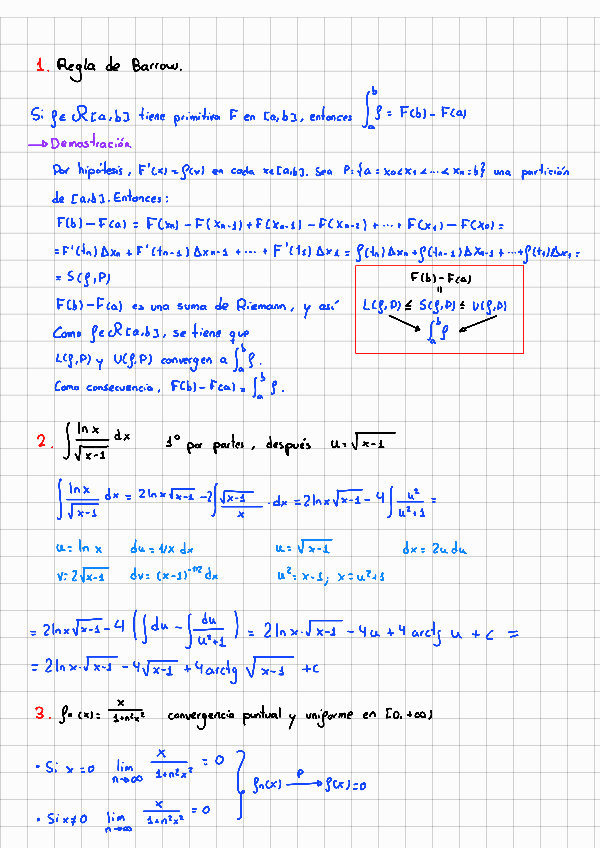 1. Regla de Barrow.
Si f∈R[a,b] tiene primitiva F en [a,b], entonces ∫_a^b f = F(b)-F(a)
→ Demostración
Por hipótesis, F'(x)=f(x) en cada x∈[a,b]. Sea P={a=x₀<x₁<...<xₙ=b} una partición
de [a,b]. Entonces:
F(b)-F(a) = F(xₙ)-F(xₙ₋₁)+F(xₙ₋₁)-F(xₙ₋₂)+...+F(x₁)-F(x₀)=
=F'(tₙ)Δxₙ+F'(tₙ₋₁)Δxₙ₋₁+...+F'(t₁)Δx₁=f(tₙ)Δxₙ+f(tₙ₋₁)Δxₙ₋₁+...+f(t₁)Δx₁=
=S(f,P)
F(b)-F(a) es una suma de Riemann, y así
Como f∈R[a,b], se tiene que
L(f,P) y U(f,P) convergen a ∫_a^b f.
Como consecuencia, F(b)-F(a)=∫_a^b f.
F(b)-F(a)
=
L(f,P) ≤ S(f,P) ≤ U(f,P)
∫_a^b f
2. ∫ ln x/√(x-1) dx 1º por partes, después u=√(x-1)
∫ ln x/√(x-1) dx = 2ln x√(x-1) -2∫ √(x-1)/x · dx = 2ln x√(x-1) - 4∫ u²/(u²+1) =
u=ln x du=1/x dx u=√(x-1) dx=2u du
v=2√(x-1) dv=(x-1)^(-1/2) dx u²=x-1; x=u²+1
=2ln x√(x-1) -4(∫du - ∫ du/(u²+1)) = 2ln x·√(x-1) -4u+4arctg u+c =
=2ln x·√(x-1) -4√(x-1) +4arctg √(x-1) +c
3. fₙ(x)= x/(1+n²x²) convergencia puntual y uniforme en [0,+∞)
· Si x=0 lim_(n→∞) x/(1+n²x²) = 0
fₙ(x) →^P f(x)=0
· Si x≠0 lim_(n→∞) x/(1+n²x²) = 0